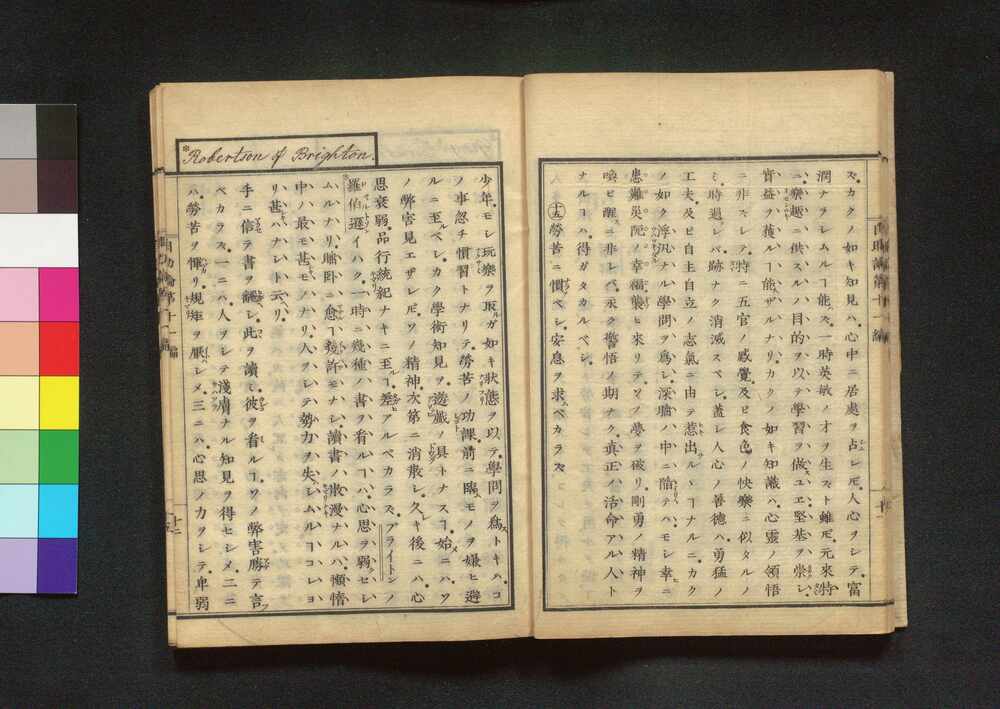 スカクノ如キ知見ハ心中ニ居處ヲ占レ𪜈人心ヲシテ富
潤ナラシムルヿ能ス一時英敏ノ才ヲ生スト雖𪜈元來特
ニ樂趣ニ供スルノ目的ヲ以テ學習ヲ做スユヱ堅基ヲ崇シ
實益ヲ獲ルヿ能ザルナリカクノ如キ知識ハ心靈ノ領悟
ニ非スシテ特ニ五官ノ感覺及ヒ食色ノ快樂ニ似タルノ
ミ時過レバ跡ナク消滅スベシ蓋シ人心ノ善德ハ勇猛ノ
工夫及ビ自主自立ノ志氣ニ由テ惹出ルヿナルニカク
ノ如ク浮汎ナル學問ヲ爲シ深ク睡中ニ陷テハモシ幸ニ
患難災阨ノ幸福襲ヒ來リテソノ夢ヲ破リ剛勇ノ精神ヲ
喚ビ醒ニ非レバ永ク警悟ノ期ナク眞正ノ活命アル人ト
ナルヿハ得ガタカルベシ
十五 勞苦ニ慣ベシ安息ヲ求ベカラズ
*Robertson of Brighton.
少年モシ玩樂ヲ取ルガ如キ狀態ヲ以テ學問ヲ爲ストキハコ
ノ事忽チ慣習トナリテ勞苦ノ功課前ニ臨スモノヲ嫌ヒ避
ルニ至ルベシカク學術知見ヲ遊戲ノ具トナスヿ始ニハソ
ノ弊害見エザレ𪜈ソノ精神次第ニ消散シ久キ後ニハ心
思衰弱品行統紀ナキニ至ルヿ差アルベカラズブライトンノ
羅伯遜イハク一時ニ幾種ノ書ヲ看ルヿハ心思ヲ弱セシ
ムルナリ臨卧ニ愈ヿ幾許モナシ讀書ハ散漫ナルハ懶惰
中ノ最モ甚モノナリ人ヲシテ勢力ヲ失シムルヿコレヨ
リハ甚ハナシト云リ
手ニ信テ書ヲ飜シ此ヲ讀ミ彼ヲ看ルヿソノ弊害勝テ言フ
ベカラズ一ニハ人ヲシテ淺膚ナル知見ヲ得セシメ二ニ
ハ勞苦ヲ憚リ規矩ヲ厭シメ三ニハ心思ノ力ヲシテ卑弱